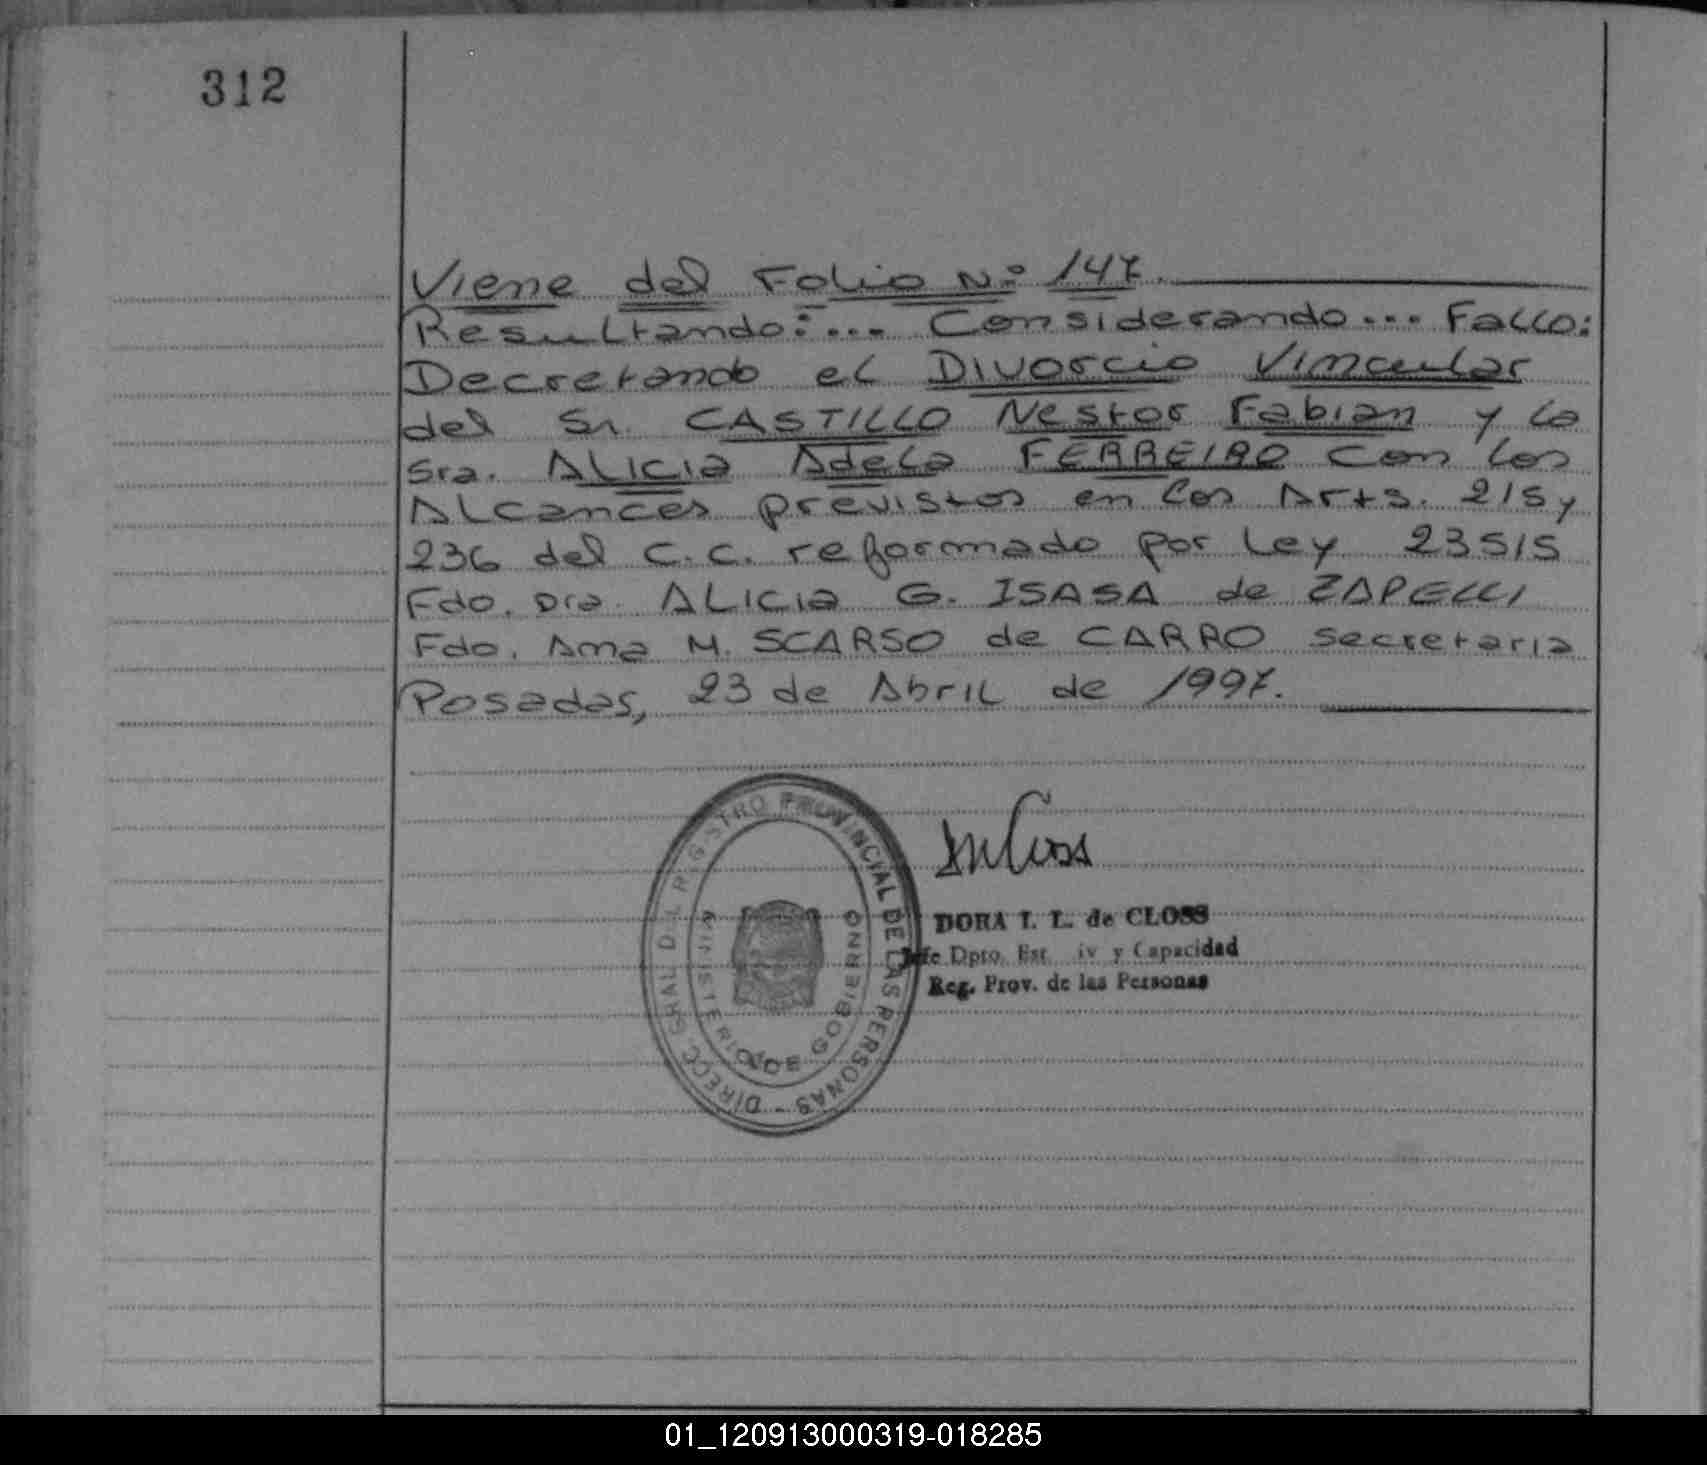 312
Viene del Folio N° 147.
Resultando:... Considerando... Fallo:
Decretando el Divorcio Vincular
del Sr. CASTILLO Nestor Fabian y la
Sra. ALICIA Adela FERREIRO con los
Alcances previstos en los Arts. 215 y
236 del C.C. reformado por Ley 23515
Fdo. Dra. ALICIA G. ISASA de ZAPELLI
Fdo. Ana M. SCARSO de CARRO secretaria
Posadas, 23 de Abril de 1997.
DIRECC. GRAL DEL REGISTRO PROVINCIAL DE LAS PERSONAS -
MINISTERIO DE GOBIERNO
DORA I. L. de CLOSS
Jefe Dpto. Est. iv y Capacidad
Reg. Prov. de las Personas
01_120913000319-018285